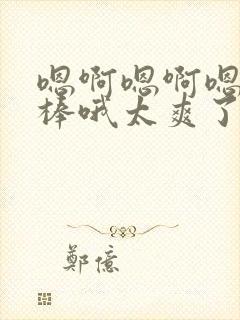 嗯啊嗯啊嗯
棒哦太爽了
鄭億